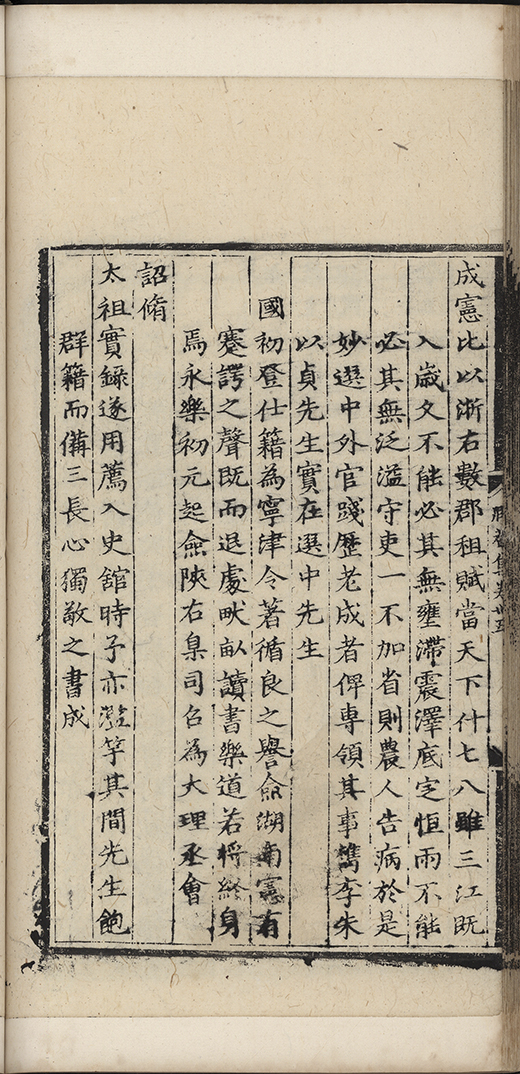 成憲比以浙右數郡租賦當天下什七八雖三江旣
入歲久不能必其無壅滯震澤底定恒雨不能
必其無泛溢守吏一不加省則農人告病於是
妙選中外官踐歷老成者俾專領其事檇李朱
以貞先生實在選中先生
國初登仕籍為寧津令著循良之譽僉湖南憲有
蹇諤之聲既而退處畎畝讀書樂道若將終身
焉永樂初元起僉陝右臬司召為大理丞會
詔脩
太祖實錄遂用薦入史舘時予亦濫竽其間先生飽
群籍而備三長心獨敬之書成